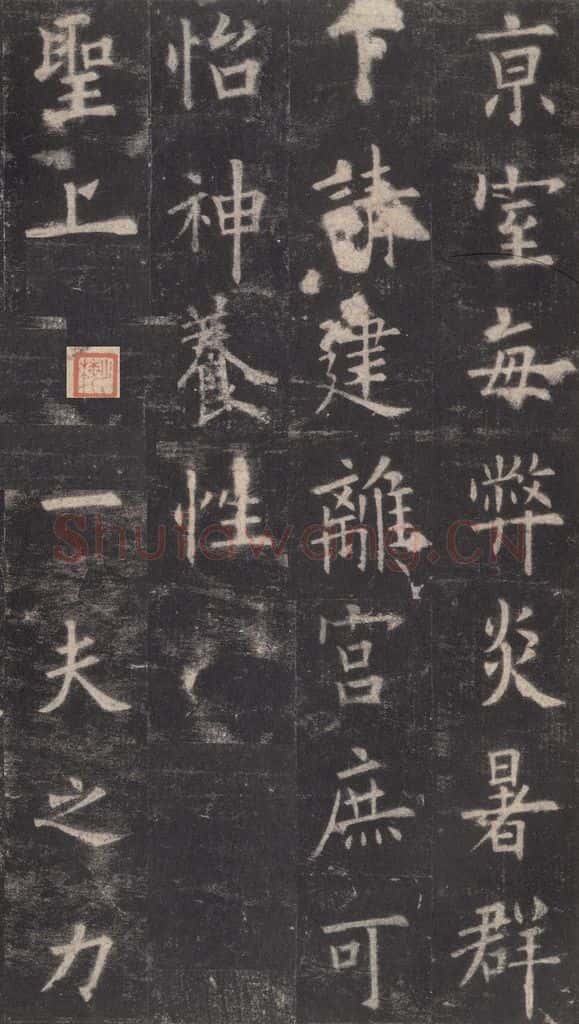 京室每弊炎暑群
下請建離宮庶可
怡神養性
聖上
一夫之力
Shufawang.CN